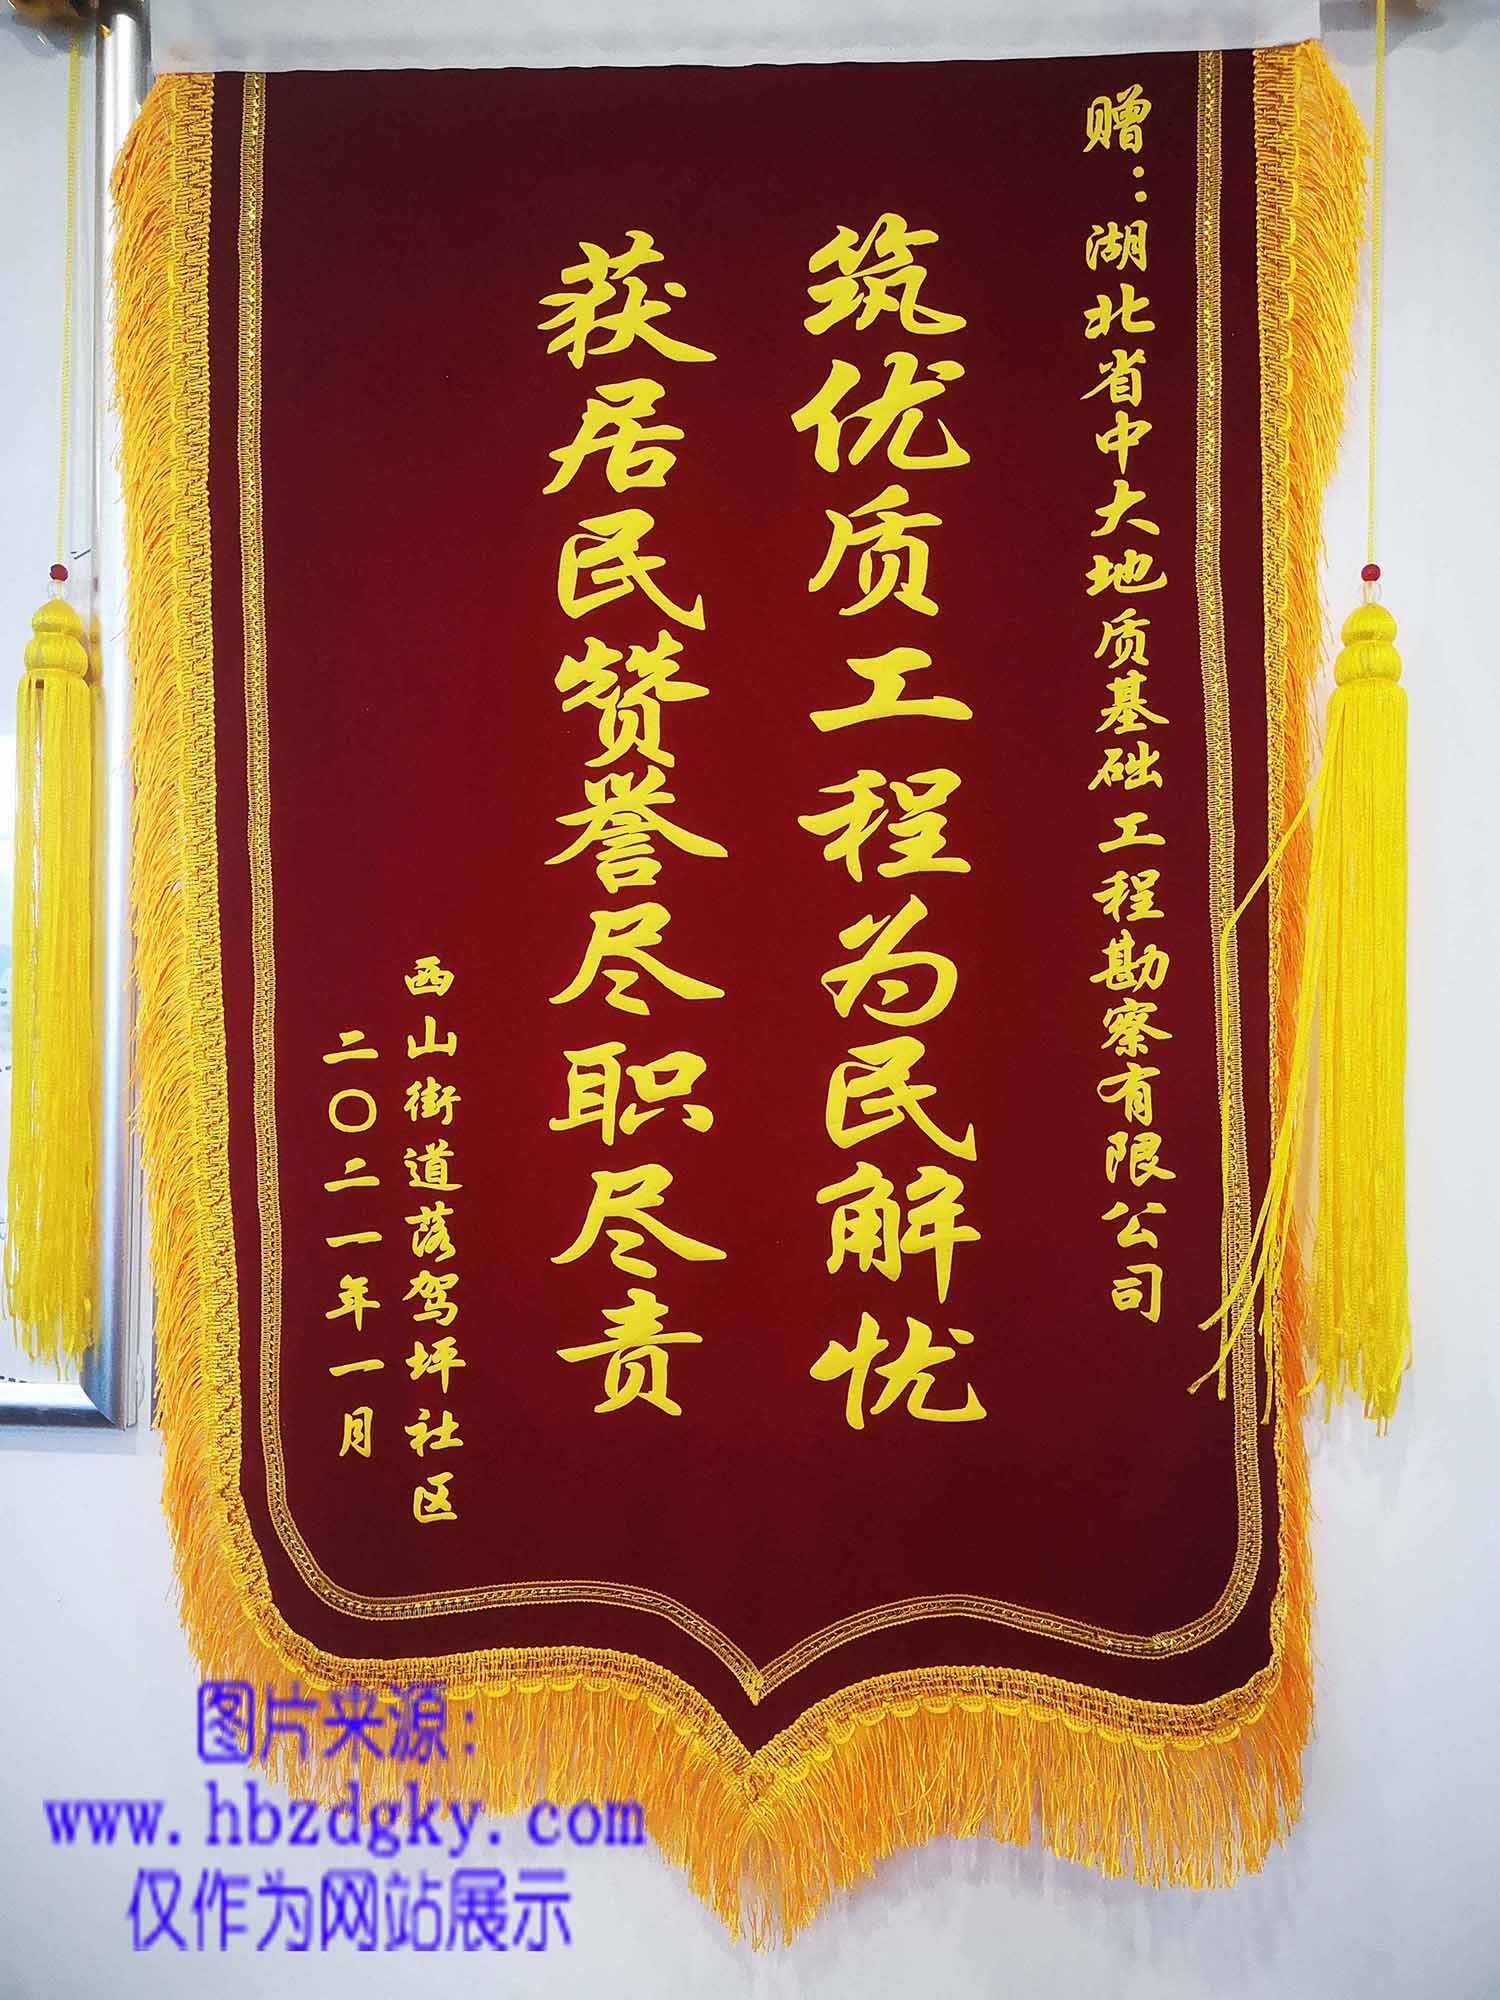 赠：湖北省中大地质基础工程勘察有限公司
筑优质工程为民解忧
获居民赞誉尽职尽责
西山街道落驾坪社区
二〇二一年一月
图片来源：
www.hbzdgky.com
仅作为网站展示